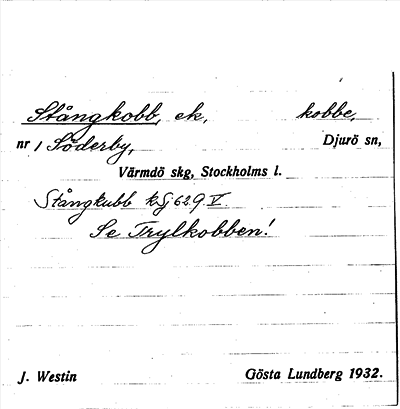 Stångkobb, ek, kobbe,
nr 1 Söderby, Djurö sn,
Värmdö skg, Stockholms l.
Stångkubb kSj 629 V.
Se Trylkobben!
J. Westin Gösta Lundberg 1932.